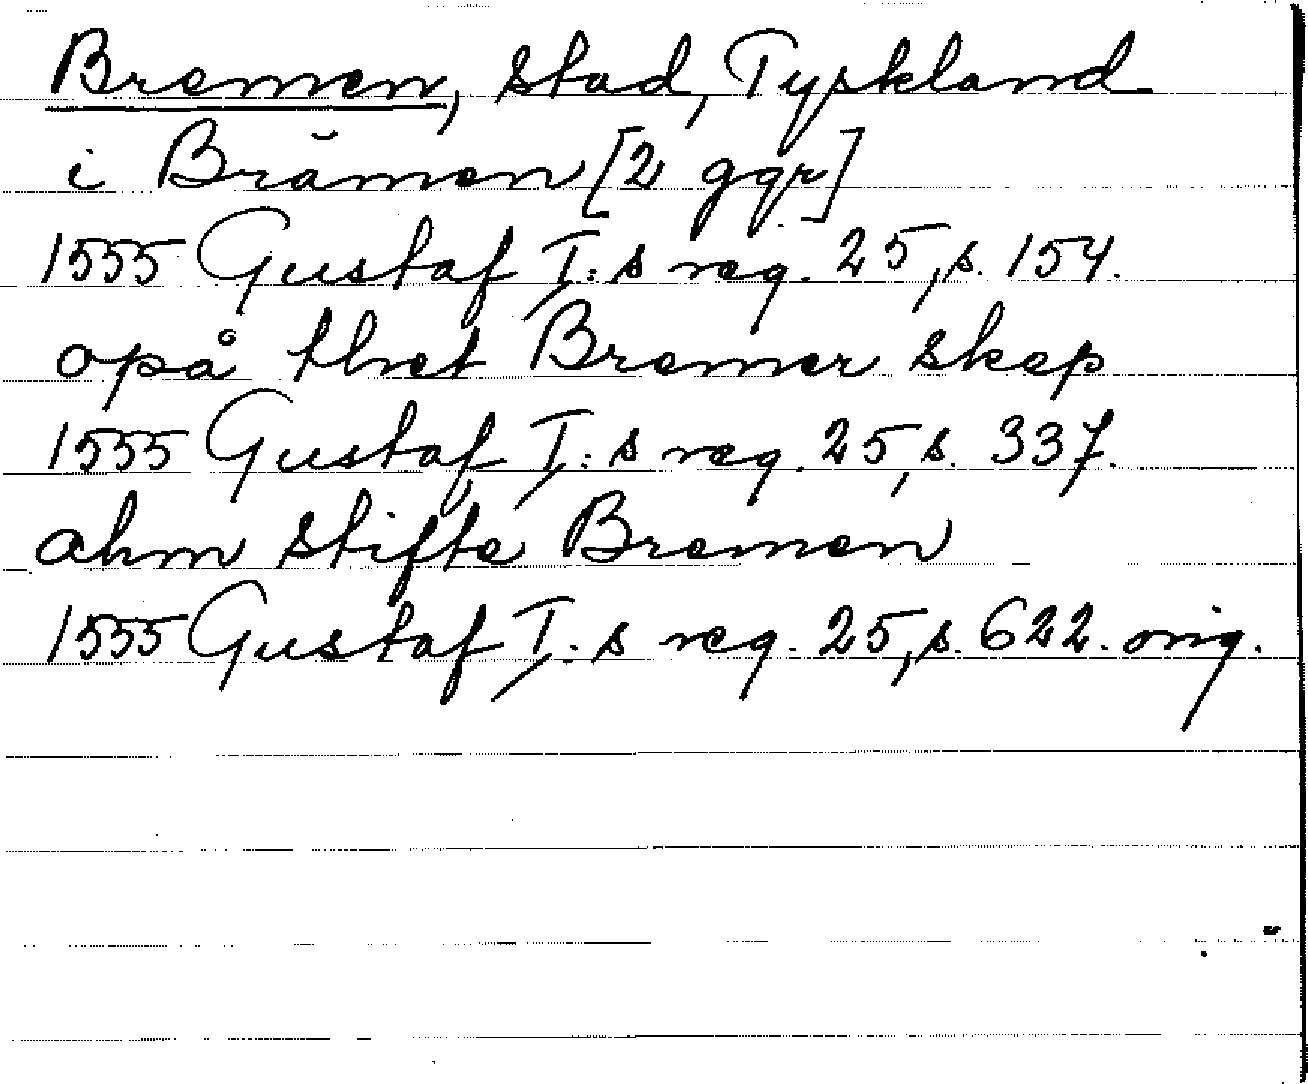 Bremen, stad, Tyskland
i Brämen [2 ggr]
1555 Gustaf I:s reg. 25, s. 154.
opå thet Bremer skep
1555 Gustaf I:s reg. 25, s. 337.
ahm stifte Bremen
1555 Gustaf I:s reg. 25, s. 622. orig.